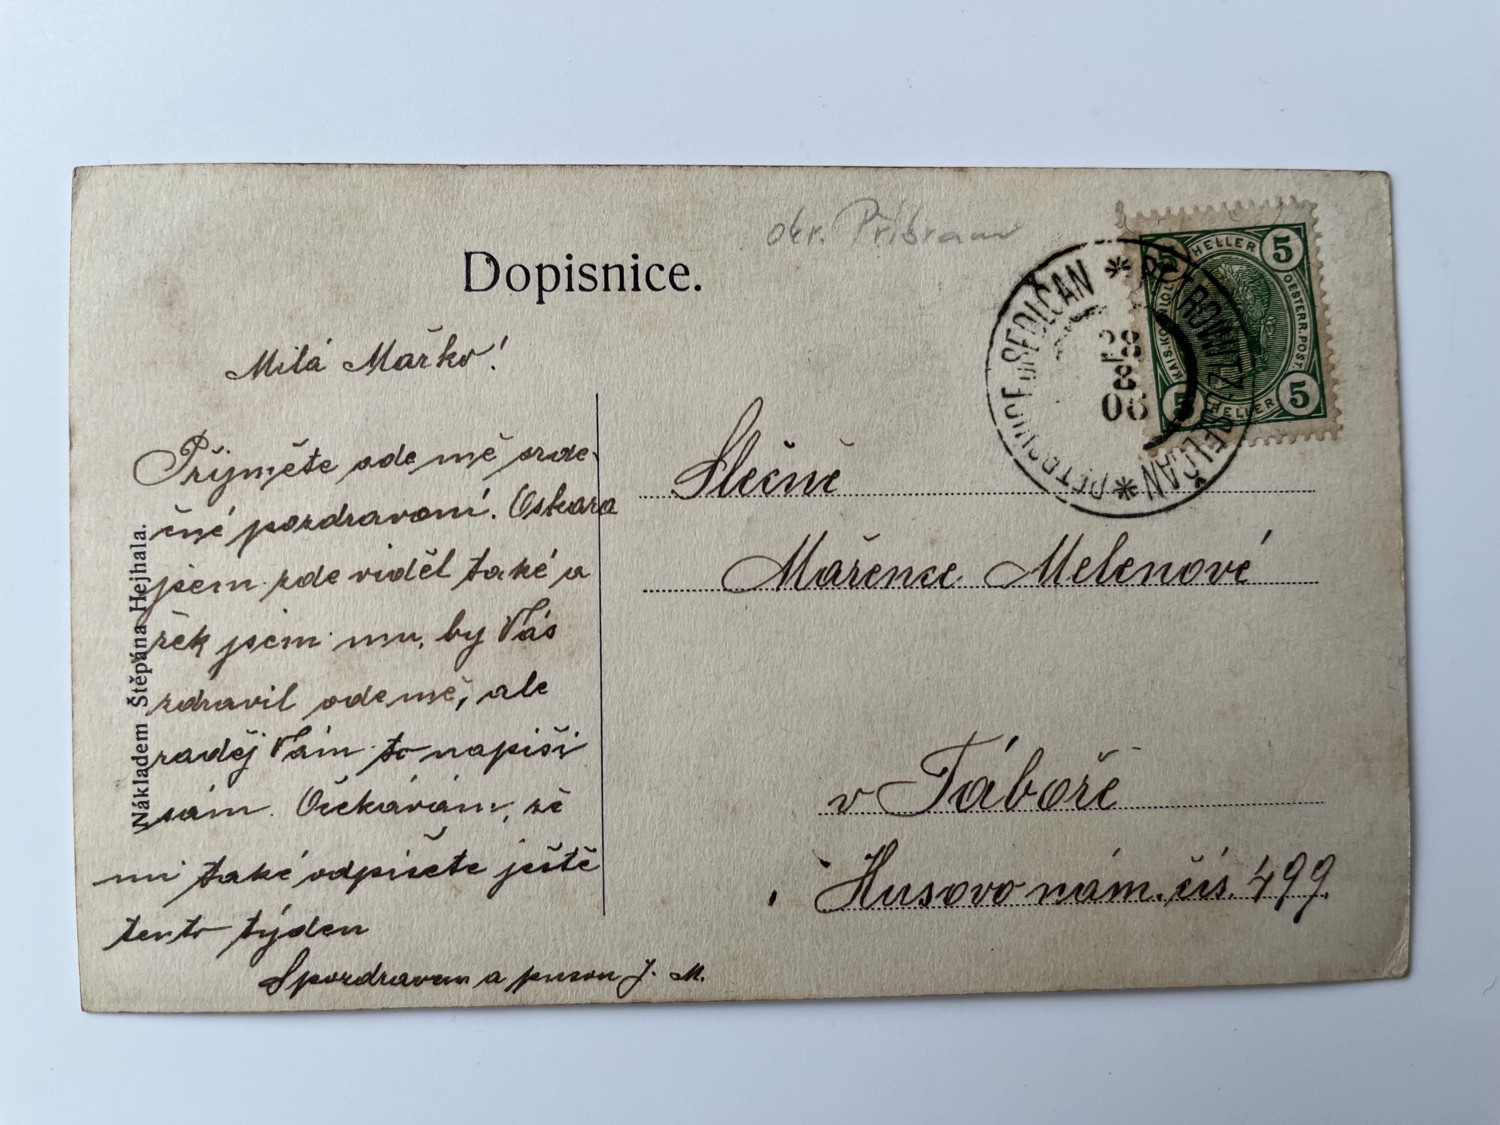 okr. Příbram
Dopisnice.
Milá Mařko!
Přijměte ode mě srde-
čné pozdravení. Oskara
jsem zde viděl také a
řek jsem mu, by Vás
zdravil ode mě, ale
raděj Vám to napiši
sám. Očekávám, že
mi také odpišete ještě
tento týden
S pozdravem a pusou J. M.
Nákladem Štěpána Hejhala.
Slečně
Mařence Melenové
v Táboře
Husovo nám. čís. 499.
PETROVICE u SEDLČAN * PETROWITZ b. SELČAN *
28
8
06
5 HELLER 5
KAIS. KÖNIGL. OESTERR. POST
5 HELLER 5